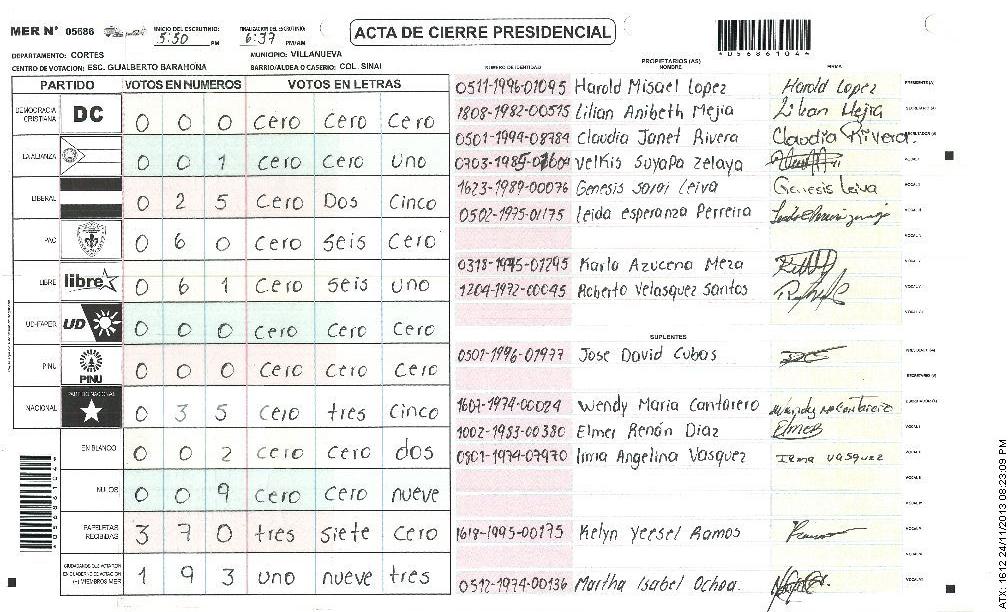 MER N° 05686 INICIO DEL ESCRUTINIO: 5:50 PM FINALIZACION DEL ESCRUTINIO: 6:37 PM/AM
ACTA DE CIERRE PRESIDENCIAL
DEPARTAMENTO: CORTES MUNICIPIO: VILLANUEVA
CENTRO DE VOTACION: ESC. GUALBERTO BARAHONA BARRIO/ALDEA O CASERIO: COL. SINAI
PARTIDO VOTOS EN NUMEROS VOTOS EN LETRAS
DEMOCRACIA CRISTIANA DC 0 0 0 cero cero cero
LA ALIANZA 0 0 1 cero cero uno
LIBERAL 0 2 5 cero Dos cinco
PAC 0 6 0 cero seis cero
LIBRE libre 0 6 1 cero seis uno
UD-FAPER UD 0 0 0 cero cero cero
PINU PINU 0 0 0 cero cero cero
NACIONAL PARTIDO NACIONAL 0 3 5 cero tres cinco
EN BLANCO 0 0 2 cero cero dos
NULOS 0 0 9 cero cero nueve
PAPELETAS RECIBIDAS 3 7 0 tres siete cero
CIUDADANOS QUE VOTARON EN CUADERNO DE VOTACION (+) MIEMBROS MER 1 9 3 uno nueve tres
PROPIETARIOS (AS)
NUMERO DE IDENTIDAD NOMBRE FIRMA
0511-1996-01095 Harold Misael Lopez Harold Lopez PRESIDENTE (A)
1808-1982-00515 Lilian Anibeth Mejia Lilian Mejia SECRETARIO (A)
0501-1994-08784 Claudia Janet Rivera Claudia Rivera. ESCRUTADOR (A)
Velkis Suyapa Zelaya VOCAL I
1623-1989-00076 Genesis Sarai Leiva Genesis Leiva VOCAL II
0502-1975-01175 leida esperanza Perreira VOCAL III
VOCAL IV
0318-1975-01295 Karla Azucena Meza VOCAL V
1204-1972-00045 Roberto Velasquez Santos VOCAL VI
SUPLENTES
0501-1996-01977 Jose David Cubas PRESIDENTE (A)
SECRETARIO (A)
1607-1974-00024 Wendy Maria Cantarero Wendy M Cantarero ESCRUTADOR (A)
1002-1983-00380 Elmer Renán Diaz Elmer VOCAL I
0801-1974-07970 Irma Angelina Vasquez Irma Vasquez VOCAL II
1618-1995-00175 Kelyn Yeesel Ramos
0512-1974-00136 Martha Isabel Ochoa.
*056861044
ATX: 1612 24/11/2013 08:23:09 PM